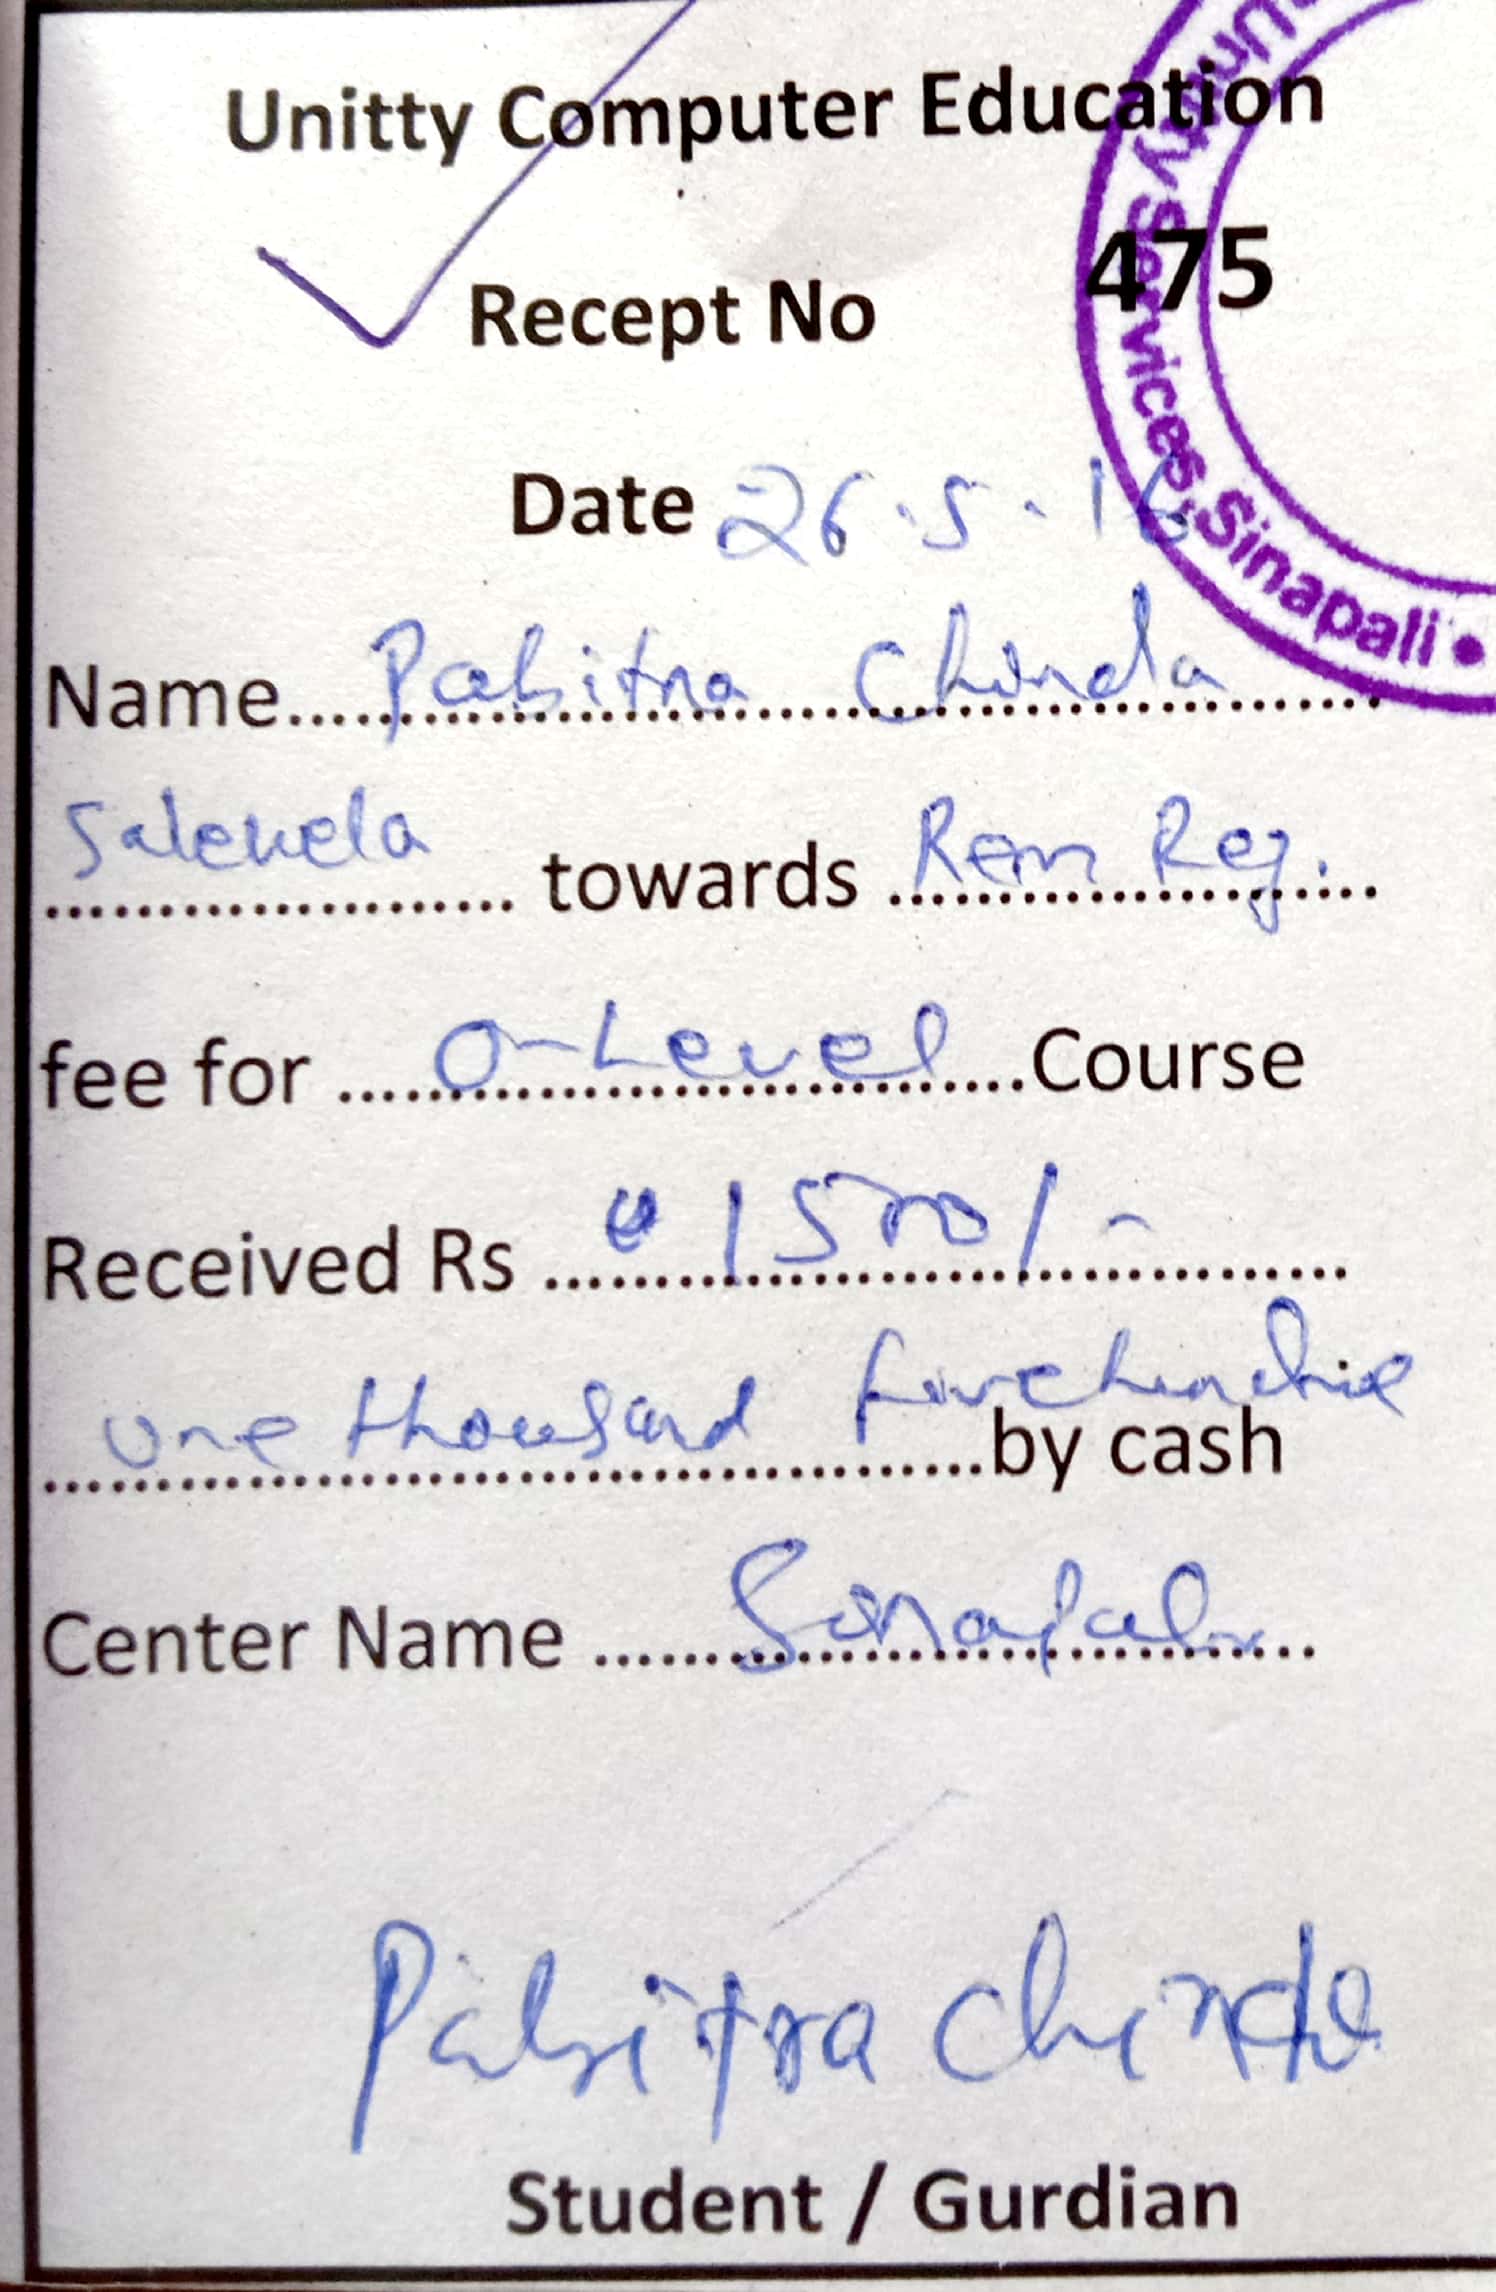 Unitty Computer Education
Recept No 475
Unitty Services, Sinapali •
Date 26.5.16
Name.......Pabitra Chinda.......
Salekela ....... towards ....... Rem Reg.
fee for ....... O-Level .......Course
Received Rs ....... 1500/-
one thousand .......by cash
Center Name ....... Sinapali
Pabitra Chinda
Student / Gurdian